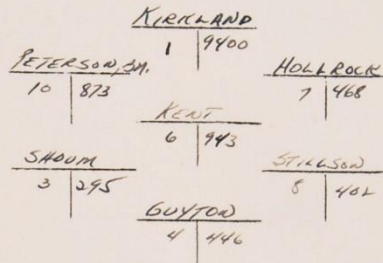 KIRKLAND
1 9400
PETERSON, JM.
10 873
HOLLROCK
7 468
KENT
6 943
SHOUM
3 295
STILLSON
8 402
GUYTON
4 446